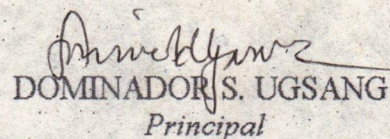 DOMINADOR S. UGSANG
Principal